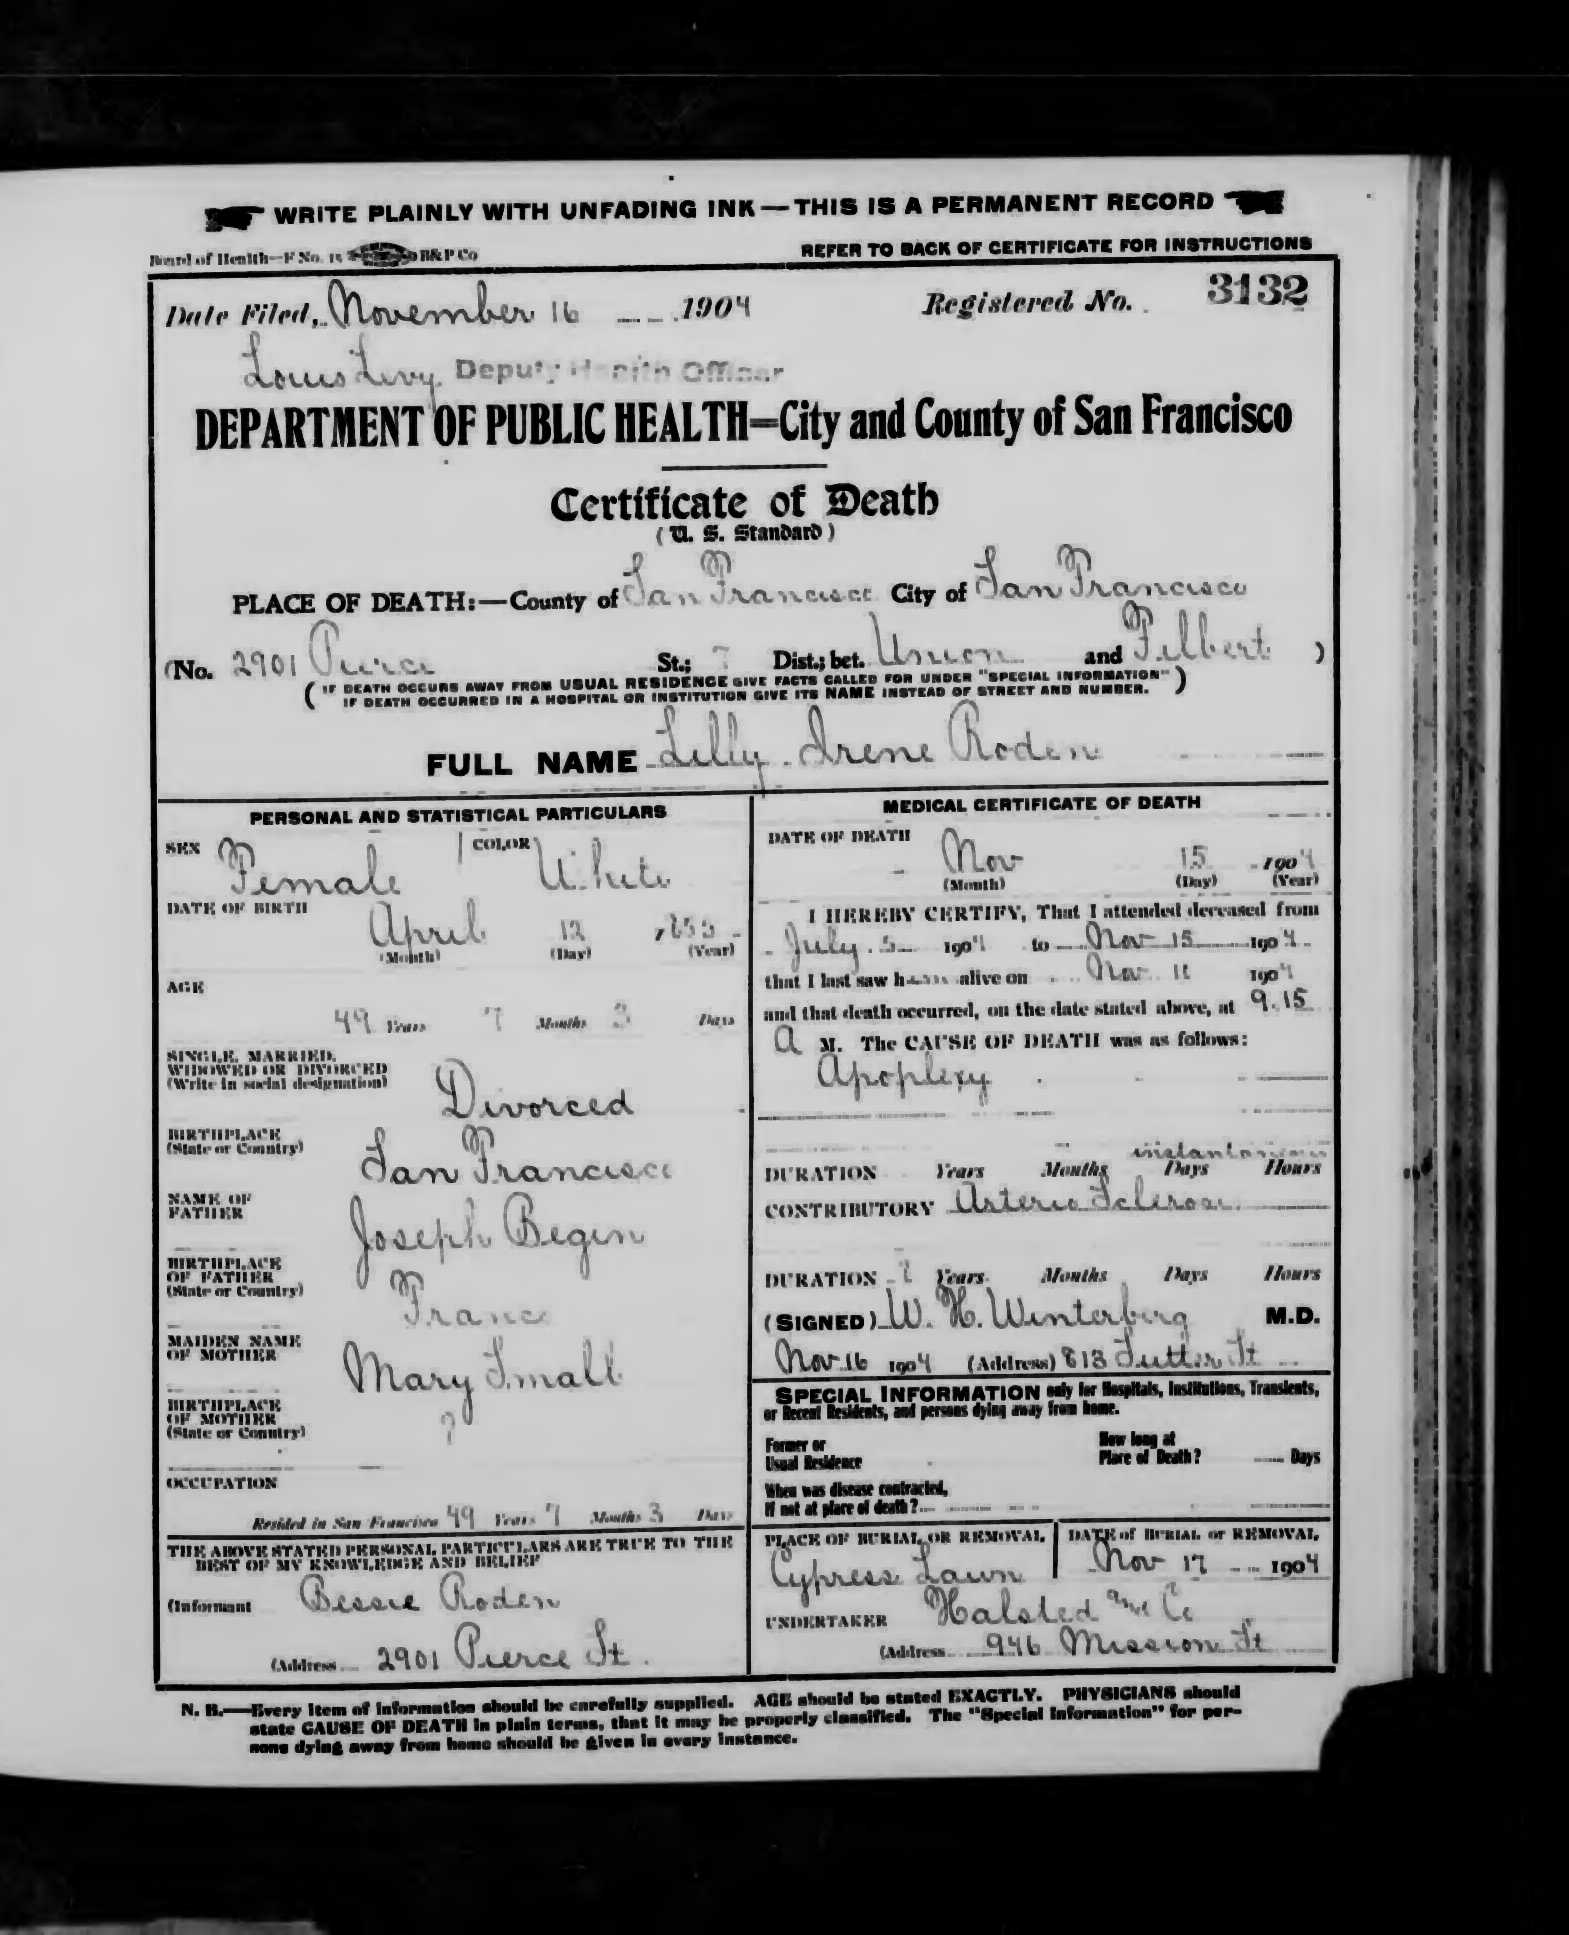 WRITE PLAINLY WITH UNFADING INK — THIS IS A PERMANENT RECORD
Board of Health—F No. 15 B&P Co REFER TO BACK OF CERTIFICATE FOR INSTRUCTIONS
Date Filed, November 16 1904 Registered No. 3132
Louis Levy Deputy Health Officer
DEPARTMENT OF PUBLIC HEALTH=City and County of San Francisco
Certificate of Death
(U. S. Standard)
PLACE OF DEATH:—County of San Francisco City of San Francisco
(No. 2901 Pierce St.; 7 Dist.; bet. Union and Filbert )
(IF DEATH OCCURS AWAY FROM USUAL RESIDENCE GIVE FACTS CALLED FOR UNDER "SPECIAL INFORMATION"
IF DEATH OCCURRED IN A HOSPITAL OR INSTITUTION GIVE ITS NAME INSTEAD OF STREET AND NUMBER.)
FULL NAME Lilly Irene Roden
PERSONAL AND STATISTICAL PARTICULARS
SEX Female COLOR White
DATE OF BIRTH
April 12 1855
(Month) (Day) (Year)
AGE
49 Years 7 Months 3 Days
SINGLE, MARRIED,
WIDOWED OR DIVORCED
(Write in social designation) Divorced
BIRTHPLACE
(State or Country) San Francisco
NAME OF
FATHER Joseph Begin
BIRTHPLACE
OF FATHER
(State or Country) France
MAIDEN NAME
OF MOTHER Mary Small
BIRTHPLACE
OF MOTHER
(State or Country) ?
OCCUPATION
Resided in San Francisco 49 Years 7 Months 3 Days
THE ABOVE STATED PERSONAL PARTICULARS ARE TRUE TO THE
BEST OF MY KNOWLEDGE AND BELIEF
(Informant Bessie Roden
(Address 2901 Pierce St.
MEDICAL CERTIFICATE OF DEATH
DATE OF DEATH
Nov 15 1904
(Month) (Day) (Year)
I HEREBY CERTIFY, That I attended deceased from
July 5 1904 to Nov 15 1904
that I last saw h alive on Nov 11 1904
and that death occurred, on the date stated above, at 9.15
A M. The CAUSE OF DEATH was as follows:
Apoplexy
instantaneous
DURATION Years Months Days Hours
CONTRIBUTORY Arterio Sclerosi
DURATION Years Months Days Hours
(SIGNED) W. H. Winterberg M.D.
Nov 16 1904 (Address) 813 Sutter St
SPECIAL INFORMATION only for Hospitals, Institutions, Transients,
or Recent Residents, and persons dying away from home.
Former or
Usual Residence
How long at
Place of Death? Days
When was disease contracted,
If not at place of death?
PLACE OF BURIAL OR REMOVAL
Cypress Lawn
DATE of BURIAL or REMOVAL
Nov 17 1904
UNDERTAKER Halsted and Co
(Address 946 Mission St
N. B.—Every item of information should be carefully supplied. AGE should be stated EXACTLY. PHYSICIANS should
state CAUSE OF DEATH in plain terms, that it may be properly classified. The "Special Information" for per-
sons dying away from home should be given in every instance.